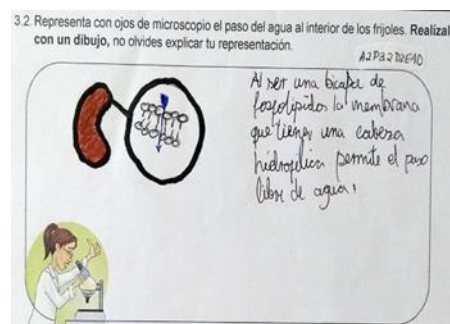 3.2. Representa con ojos de microscopio el paso del agua al interior de los frijoles. Realízal
con un dibujo, no olvides explicar tu representación.
A2P3.2D2E10
Al ser una bicapa de
fosfolípidos la membrana
que tienen una cabeza
hidrofílica permite el paso
libre de agua.